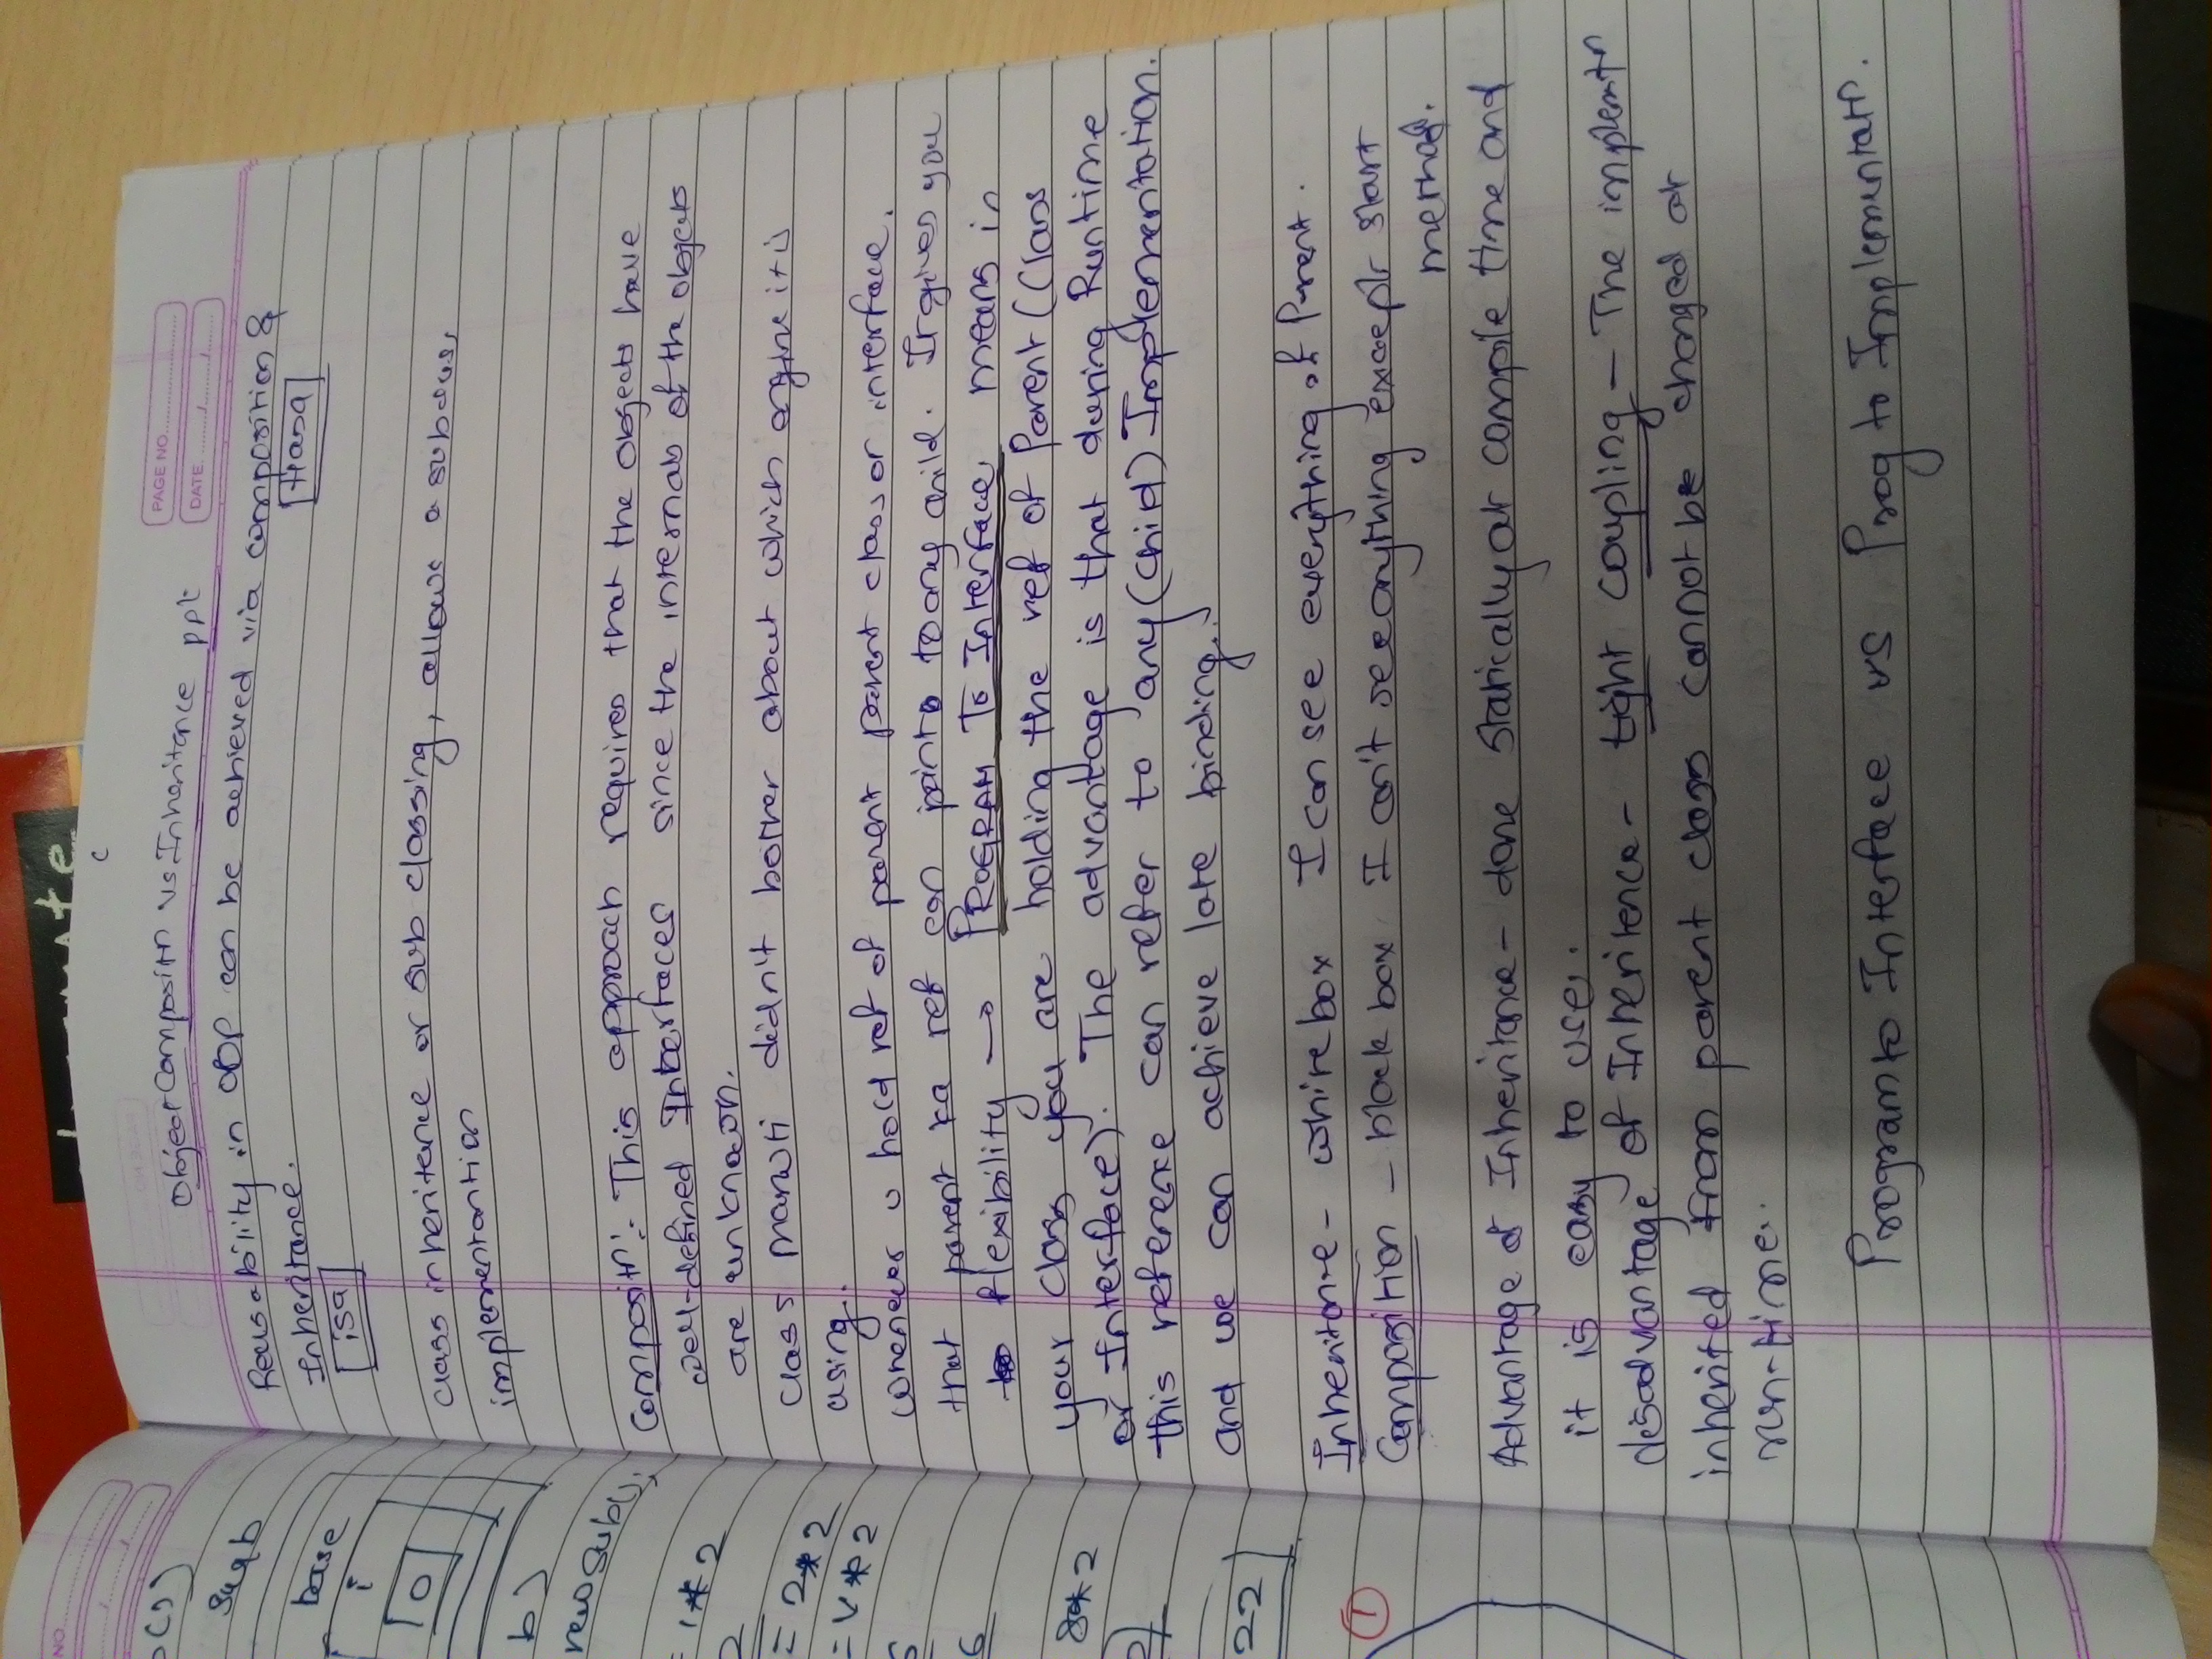 PAGE NO.
DATE
Object Compositn vs Inheritance ppt
Reusability in OOP can be achieved via composition &
[Hasa]
Inheritance.
[isa]
Class inheritence or sub classing, allows a subclass
implementantion
Compositn:- This approach requires that the objects have
well-defined Interfaces since the internals of the objects
are unknown.
Class maruti didn't bother about which engine it is
using.
Whenever u hold ref of parent parent class or interface.
that parent ka ref can point to any child. It gives you
flexibility → PROGRAM To Interface means in
your class you are holding the ref of Parent (Class
or Interface). The advantage is that during Runtime
this reference can refer to any (child) Implementation.
and we can achieve late binding.
Inheritance - white box I can see everything of Parent.
Composition - black box I can't see anything except start
method.
Advantage of Inheritance - done statically at compile time and
it is easy to use.
disadvantage of Inheritence - tight coupling - The implemtn
inherited from parent class cannot be changed at
run-time.
Program to Interface vs Prog to Implementatn.
NO.
base
i
0
b)
new Sub();
= 1*2
2
= 2*2
= V*2
6
8*2
22
1